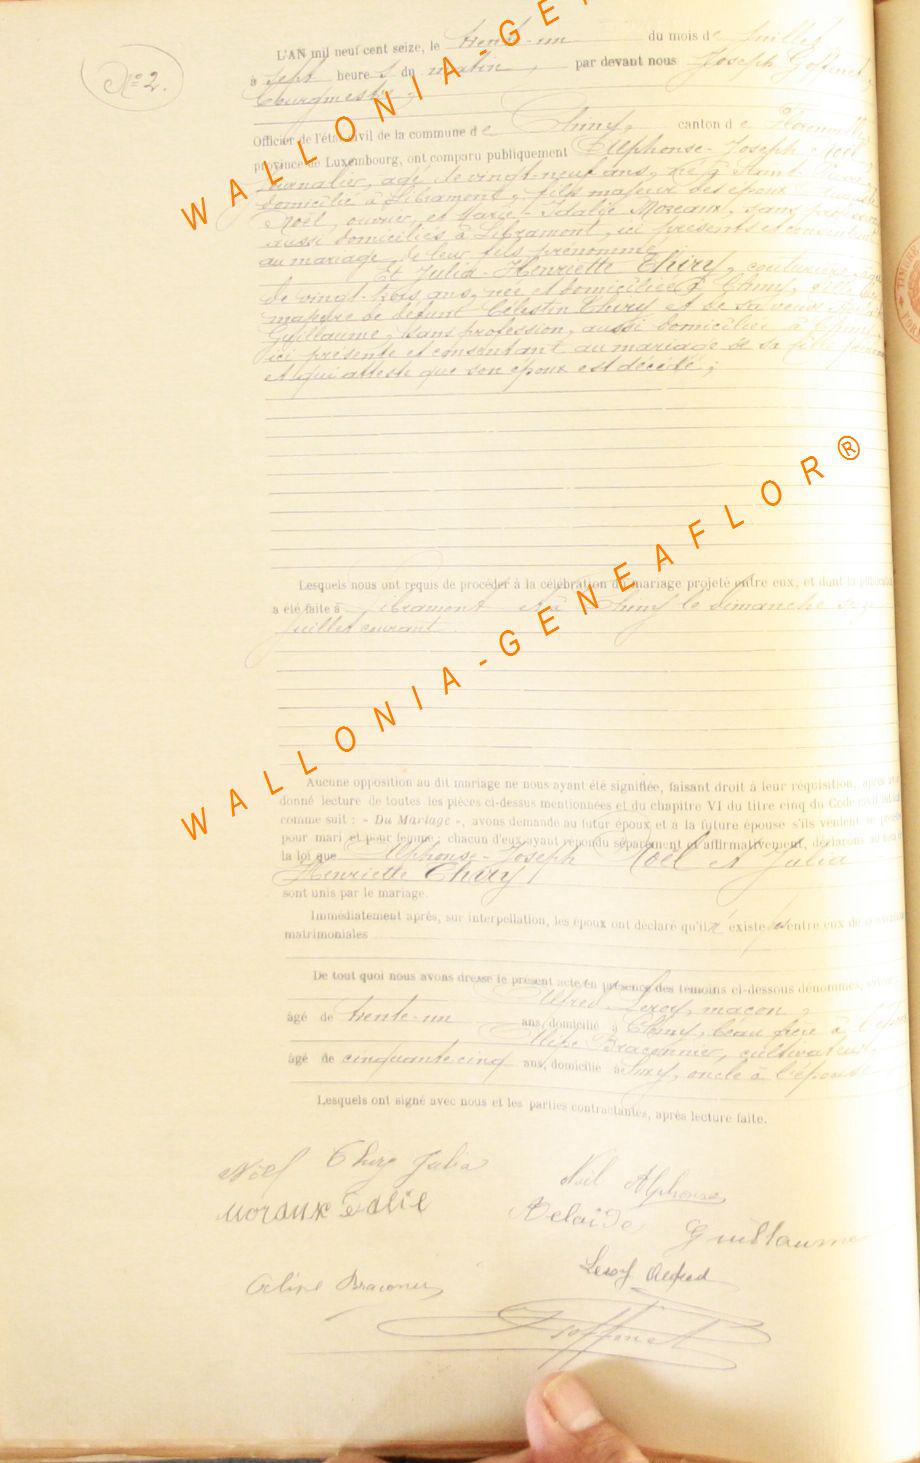 N° 2.
L'AN mil neuf cent seize, le trente-un du mois de Juillet
à sept heures du matin, par devant nous Joseph Goffinet,
Bourgmestre,
Officier de l'état civil de la commune de Chiny, canton de Florenville
province de Luxembourg, ont comparu publiquement Alphonse-Joseph Noël
journalier, âgé de vingt-neuf ans, né à
domicilié à Libramont, fils majeur des époux
Noël, ouvrier, et Marie-Idalie Moreaux, sans profession
aussi domiciliés à Libramont, ici présents et consentant
au mariage de leur fils prénommé
Et Julia-Henriette Thiry, couturière, âgée
de vingt-trois ans, née et domiciliée à Chiny, fille
majeure de défunt Célestin Thiry et de sa veuve
Guillaume, sans profession, aussi domiciliée à Chiny
ici présente et consentant au mariage de sa fille
et qui atteste que son époux est décédé ;
Lesquels nous ont requis de procéder à la célébration du mariage projeté entre eux, et dont la
a été faite à Libramont et à Chiny le dimanche seize
juillet courant.
Aucune opposition au dit mariage ne nous ayant été signifiée, faisant droit à leur réquisition, après
donné lecture de toutes les pièces ci-dessus mentionnées et du chapitre VI du titre cinq du Code civil
comme suit : « Du Mariage », avons demandé au futur époux et à la future épouse s'ils veulent se
pour mari et pour femme ; chacun d'eux ayant répondu séparément et affirmativement, déclarons au nom
la loi que Alphonse-Joseph Noël et Julia
Henriette Thiry,
sont unis par le mariage.
Immédiatement après, sur interpellation, les époux ont déclaré qu'il n'existe pas entre eux de
matrimoniales
De tout quoi nous avons dressé le présent acte en présence des témoins ci-dessous dénommés,
Alfred Leroy, maçon,
âgé de trente-un ans, domicilié à Chiny, beau frère à
Braconnier, cultivateur,
âgé de cinquante cinq ans, domicilié à oncle à l'épouse
Lesquels ont signé avec nous et les parties contractantes, après lecture faite.
Noël Thiry Julia Noël Alphonse
Moraux Adelaide Guillaume
Leroy Alfred
Goffinet
WALLONIA-GENEAFLOR®